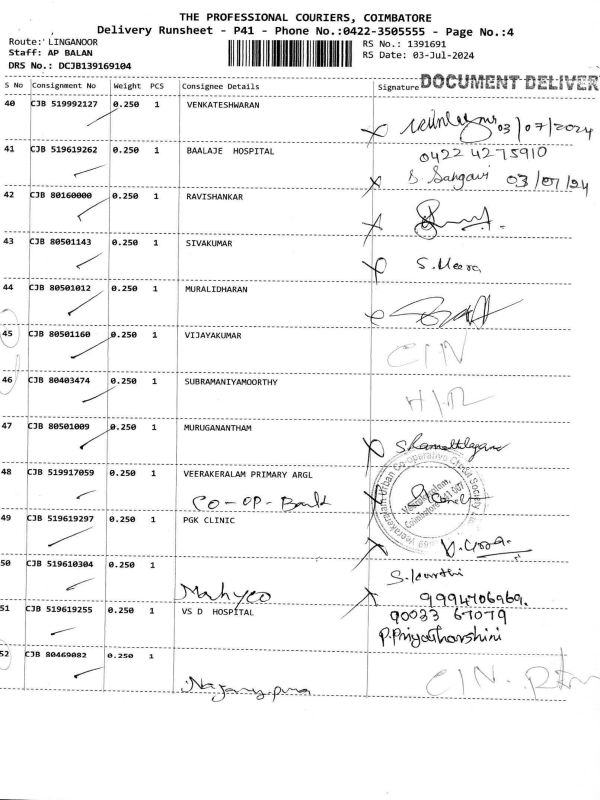 THE PROFESSIONAL COURIERS, COIMBATORE
Delivery Runsheet - P41 - Phone No.:0422-3505555 - Page No.:4
Route: LINGANOOR RS No.: 1391691
Staff: AP BALAN RS Date: 03-Jul-2024
DRS No.: DCJB139169104
S No Consignment No Weight PCS Consignee Details Signature DOCUMENT DELIVER
40 CJB 519992127 0.250 1 VENKATESHWARAN
03/07/2024
41 CJB 519619262 0.250 1 BAALAJE HOSPITAL 0422 4275910
03/07/24
42 CJB 80160000 0.250 1 RAVISHANKAR
43 CJB 80501143 0.250 1 SIVAKUMAR
S. Meera
44 CJB 80501012 0.250 1 MURALIDHARAN
45 CJB 80501160 0.250 1 VIJAYAKUMAR
CIN
46 CJB 80403474 0.250 1 SUBRAMANIYAMOORTHY
47 CJB 80501009 0.250 1 MURUGANANTHAM
48 CJB 519917059 0.250 1 VEERAKERALAM PRIMARY ARGL
CO-OP-Bank
49 CJB 519619297 0.250 1 PGK CLINIC
50 CJB 519610304 0.250 1
Mahyco 9994706969.
51 CJB 519619255 0.250 1 VS D HOSPITAL 90033 67079
P.Priyadharshini
52 CJB 80469082 0.250 1
CIN.